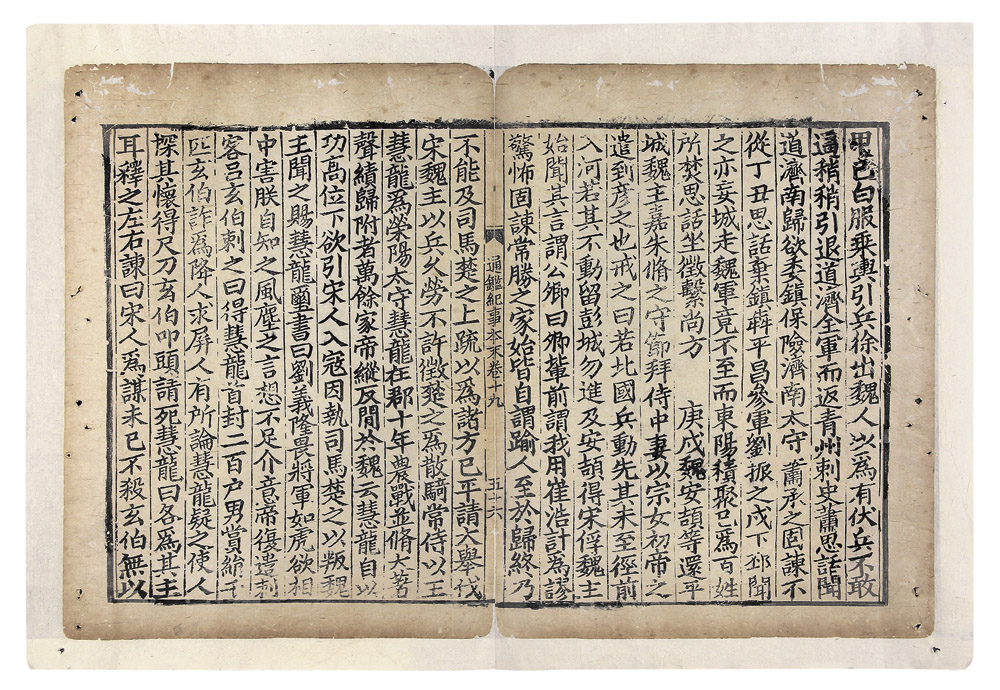 甲己白服乗輿引兵徐出魏人以爲有伏兵不敢
逼稍稍引退道濟全軍而返青州刺史蕭思話聞
道濟南歸欲委鎮保險濟南太守蕭承之固諫不
從丁丑思話棄鎮犇平昌參軍劉振之戍下邳聞
之亦妄城走魏軍竟不至而東陽積聚已爲百姓
所焚思話坐徵繫尚方 庚戌魏安頡等還平
城魏主嘉朱脩之守節拜侍中妻以宗女初帝之
遣到彥之也戒之曰若北國兵動先其未至徑前
入河若其不動留彭城勿進及安頡得宋俘魏主
始聞其言謂公卿曰卿輩前謂我用崔浩計爲謬
驚怖固諫常勝之家始皆自謂踰人至於歸終乃
通鑑紀事本末卷十九 五十六
不能及司馬楚之上疏以爲諸方已平請大舉伐
宋魏主以兵久勞不許徵楚之爲散騎常侍以王
慧龍爲滎陽太守慧龍在郡十年農戰並脩大著
聲績歸附者萬餘家帝縱反間於魏云慧龍自以
功高位下欲引宋人入寇因執司馬楚之以叛魏
主聞之賜慧龍璽書曰劉義隆畏將軍如虎欲相
中害朕自知之風塵之言想不足介意帝復遣刺
客呂玄伯刺之曰得慧龍首封二百户男賞絹千
匹玄伯詐爲降人求屏人有所論慧龍疑之使人
探其懷得尺刀玄伯叩頭請死慧龍曰各爲其主
耳釋之左右諫曰宋人爲謀未已不殺玄伯無以